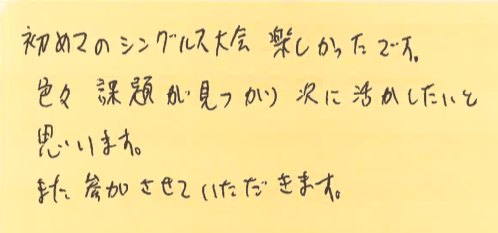 初めてのシングルス大会楽しかったです。
色々課題が見つかり次に活かしたいと
思います。
また参加させていただきます。